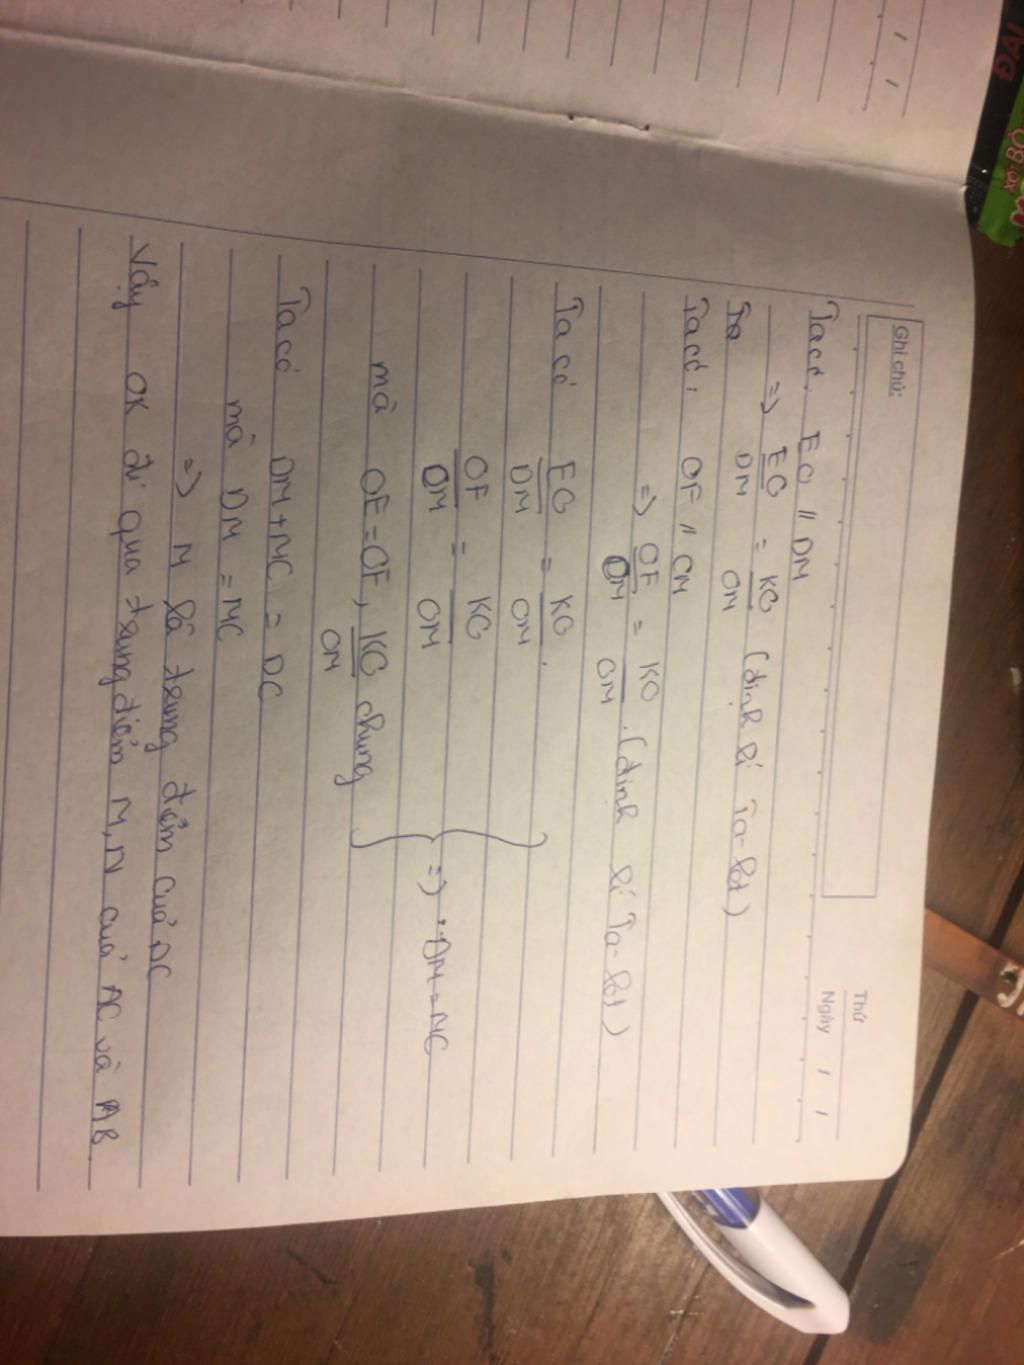 ĐẠI
XO BÒ
Ghi chú:
Thứ
Ngày / /
Ta có. EO // DM
=> EO/DM = KO/OM (định lí Ta-lét)
Ta
Ta có: OF // CM
=> OF/DM = KO/OM. (định lí Ta-lét)
Ta có EO/DM = KO/OM.
OF/DM = KO/OM
=> DM = MC
mà OE = OF, KO/OM chung
Ta có DM + MC = DC
mà DM = MC
=> M là trung điểm của DC
Vậy OK đi qua trung điểm M, N của AC và AB.